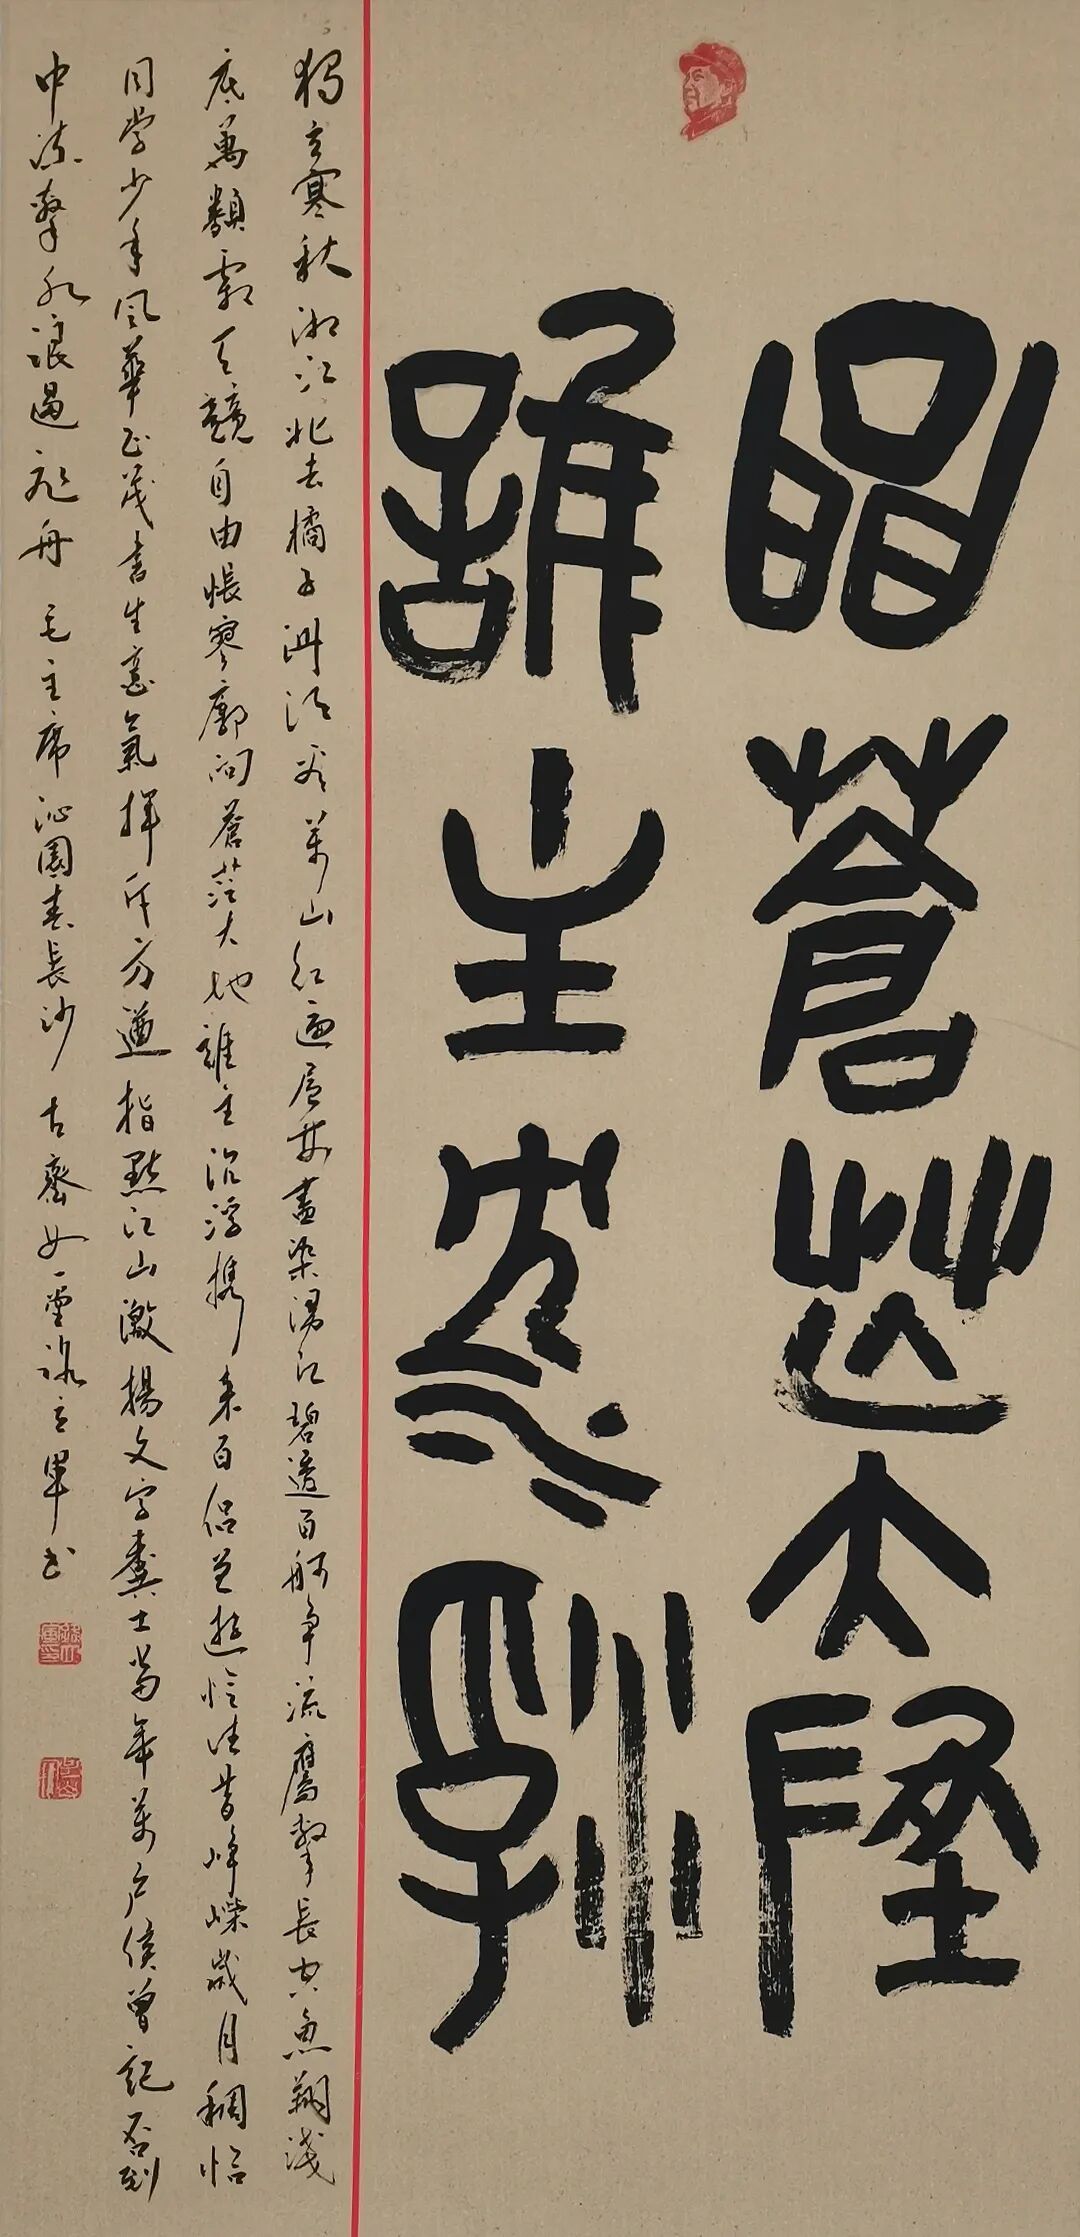 問蒼茫大地
誰主沉浮
獨立寒秋湘江北去橘子洲頭看萬山紅遍層林盡染漫江碧透百舸爭流鷹擊長空魚翔淺
底萬類霜天競自由悵寥廓問蒼茫大地誰主沉浮攜來百侶曾遊憶往昔崢嶸歲月稠恰
同學少年風華正茂書生意氣揮斥方遒指點江山激揚文字糞土當年萬户侯曾記否到
中流擊水浪遏飛舟 毛主席沁園春長沙 古齊女